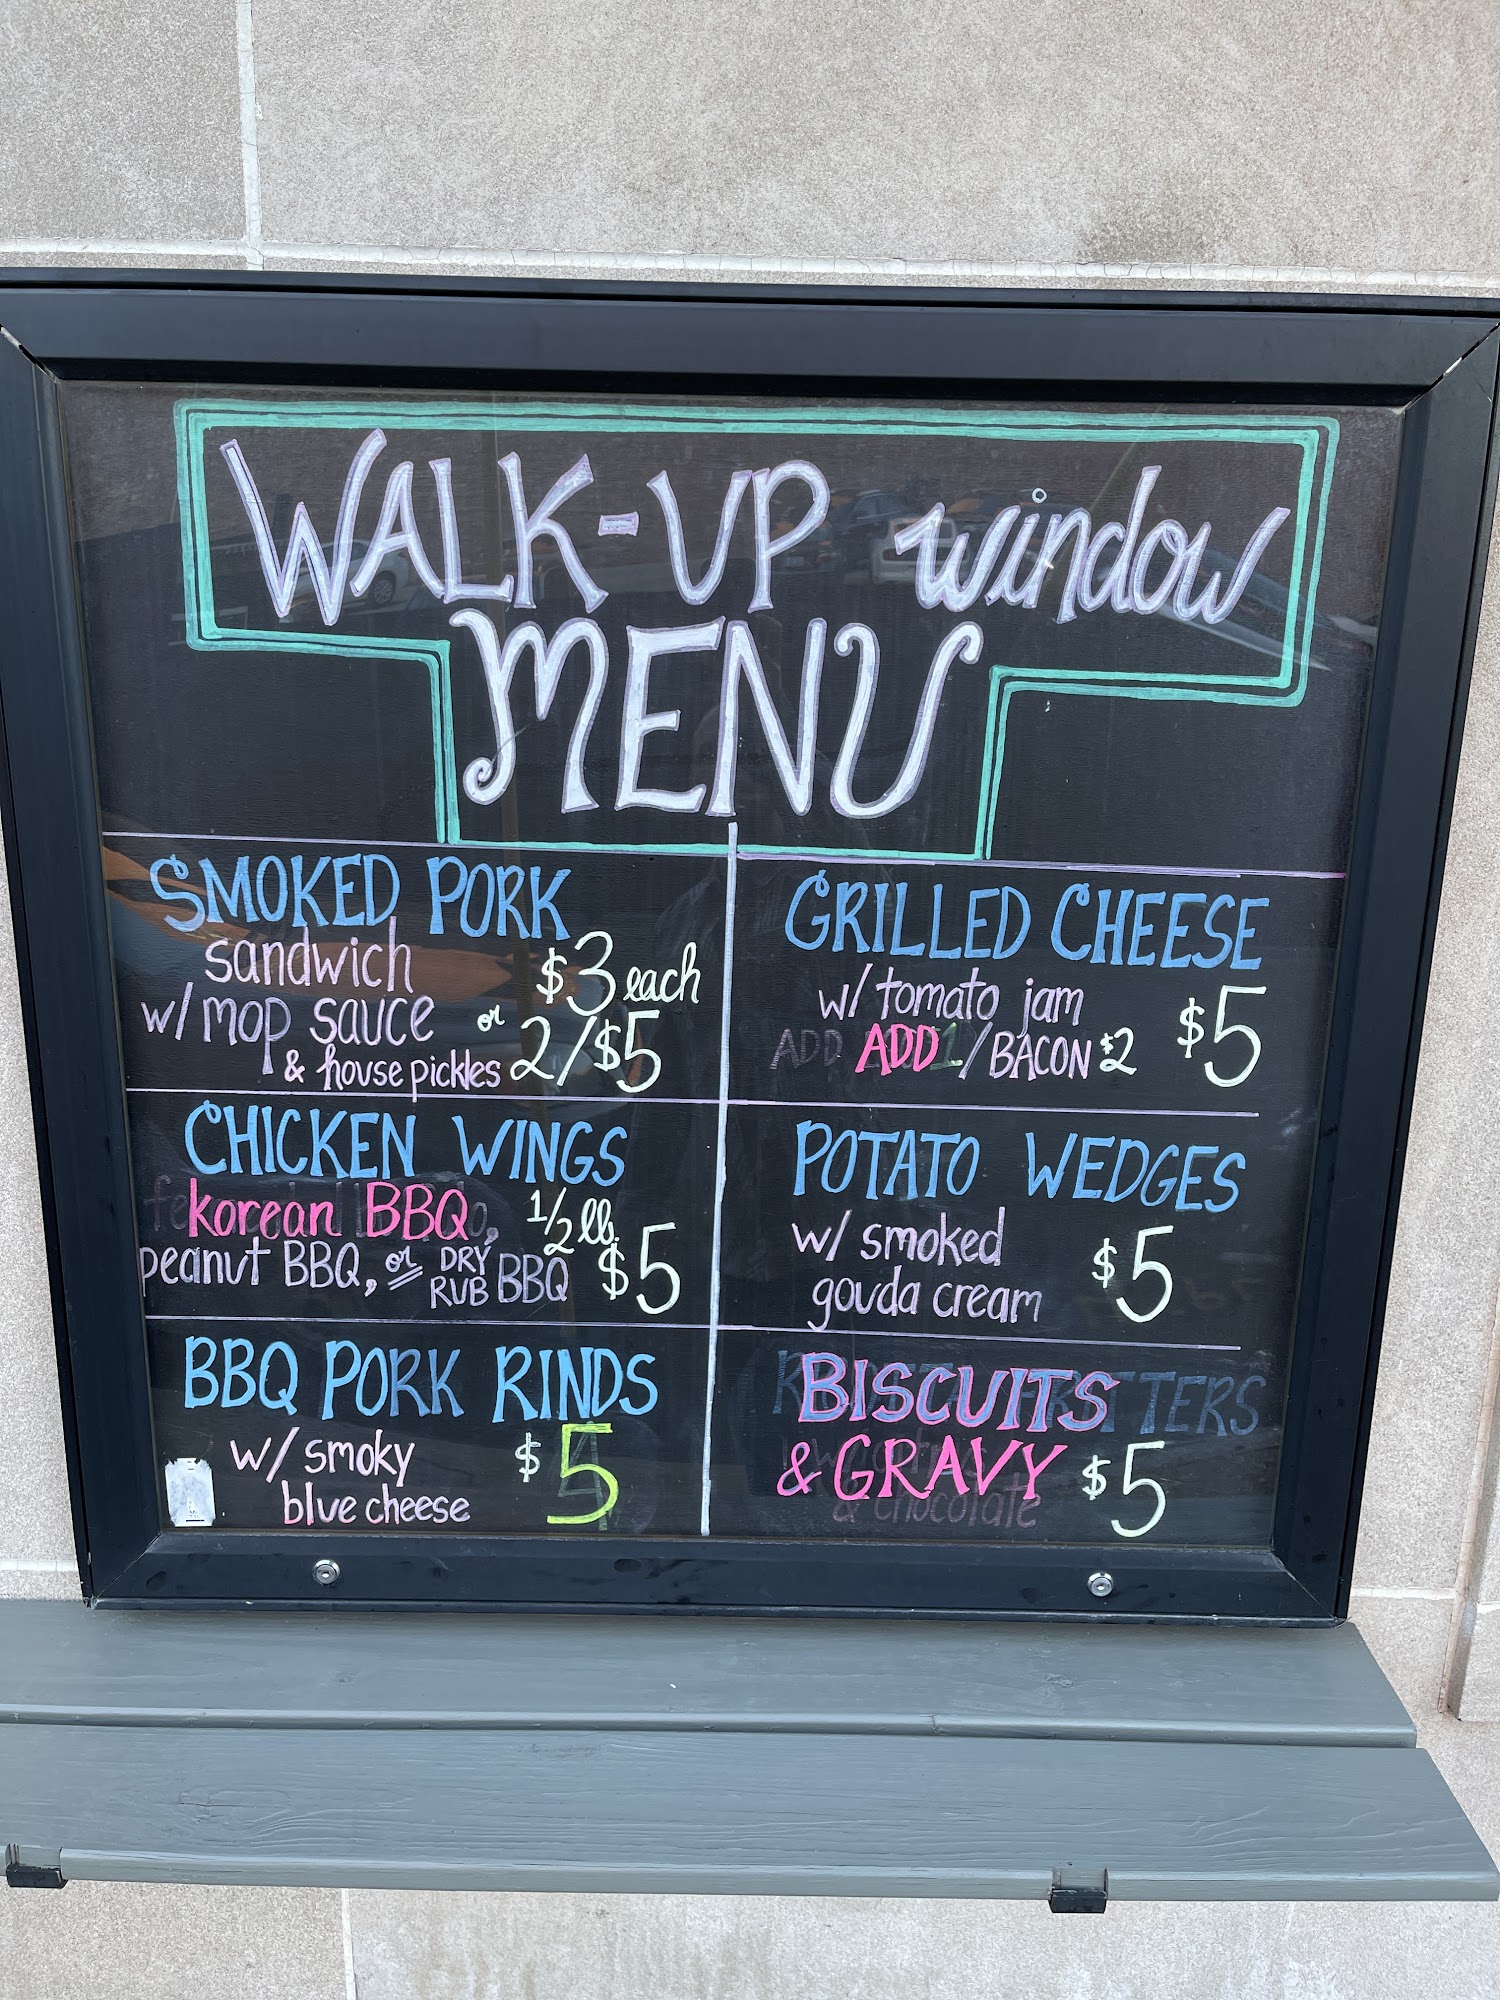 WALK-UP window
MENU
SMOKED PORK
sandwich
w/ mop sauce
& house pickles
$3 each
or 2/$5
GRILLED CHEESE
w/ tomato jam
ADD ADD /BACON $2
$5
CHICKEN WINGS
korean BBQ,
peanut BBQ, or DRY RUB BBQ
1/2 lb.
$5
POTATO WEDGES
w/ smoked
gouda cream
$5
BBQ PORK RINDS
w/ smoky
blue cheese
$5
BISCUITS
& GRAVY $5
& chocolate